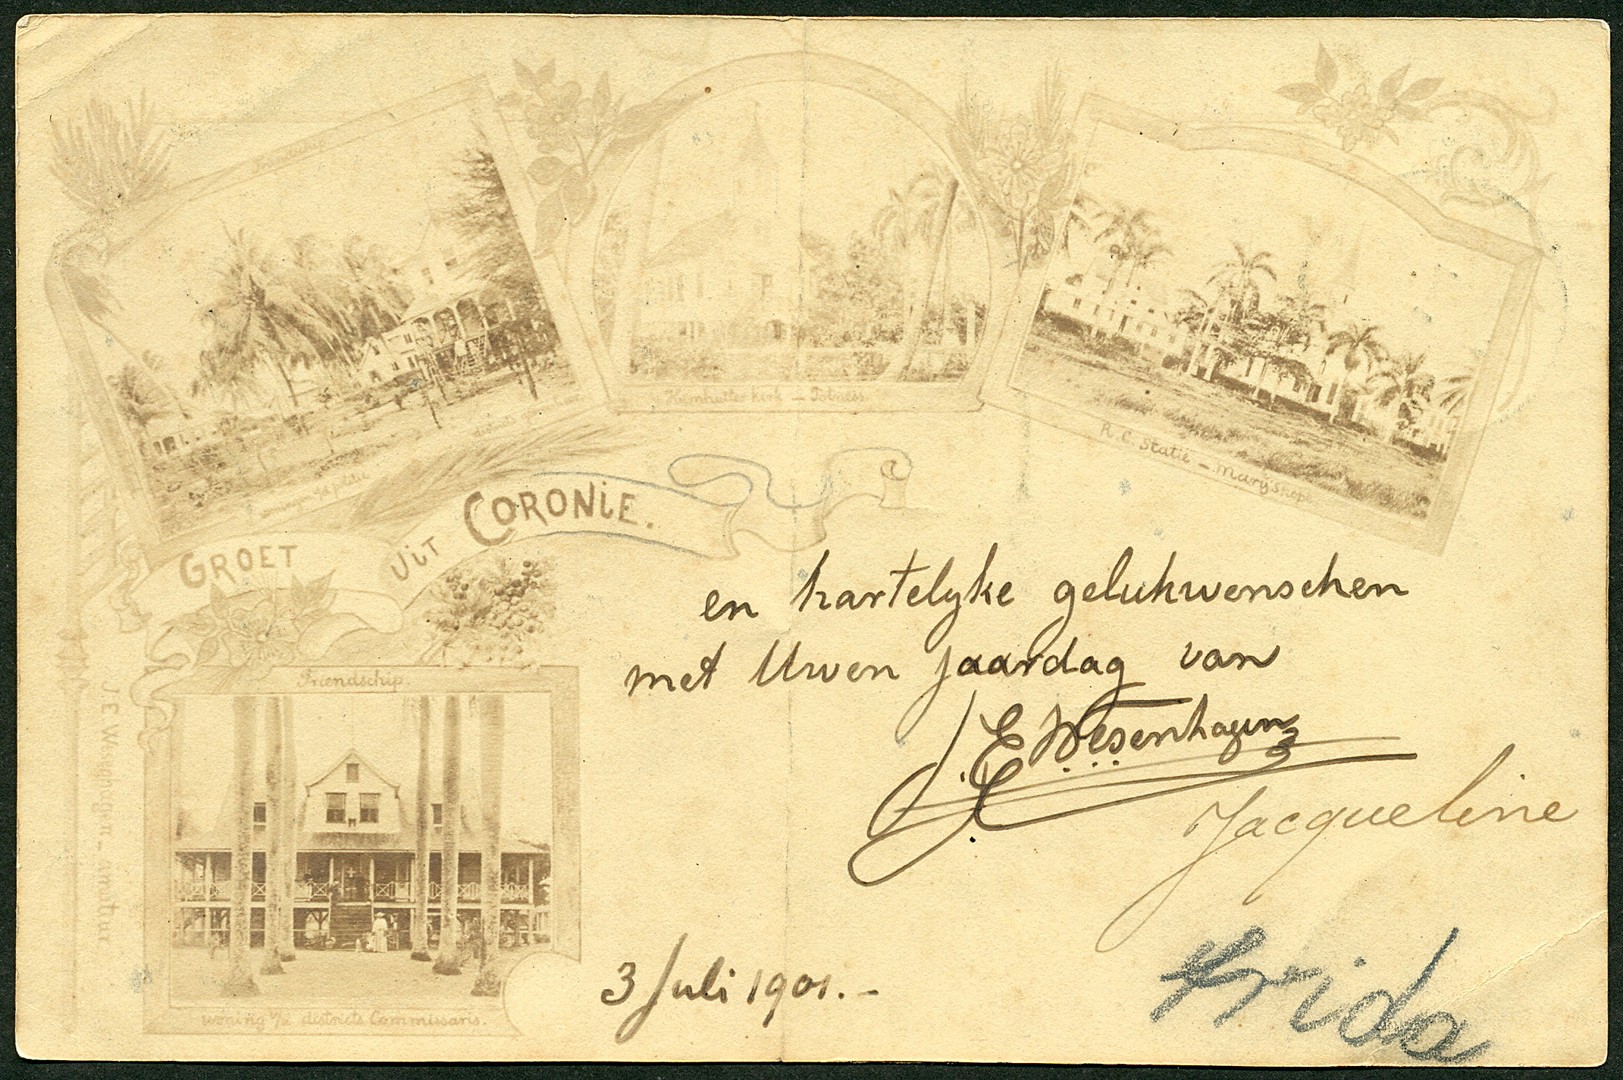 Friendschip.
Hernhutter kerk – Totness.
R. C. Statie – Mary's hope
GROET UIT CORONIE.
en hartelyke gelukwenschen
met Uwen jaardag van
J. E. Wesenhagen
Jacqueline
Frida
3 Juli 1901.-
Friendschip.
woning v/d districts Commissaris.
J. E. Wesenhagen – amateur